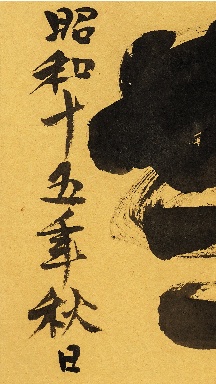 昭和十五年秋日